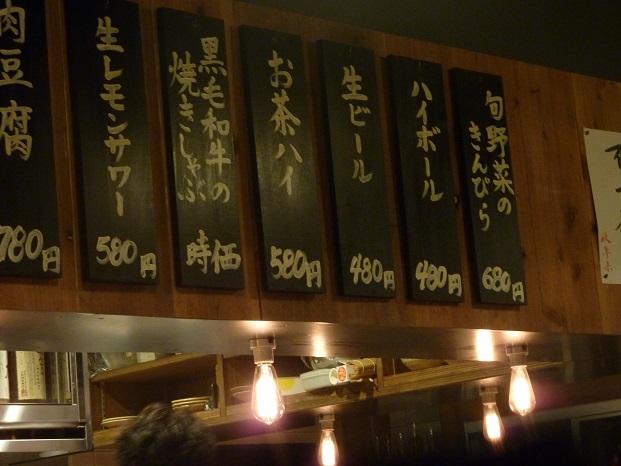 旬野菜の
きんぴら
680円
ハイボール
480円
生ビール
480円
お茶ハイ
580円
黒毛和牛の
焼きしゃぶ
時価
生レモンサワー
580円
肉豆腐
780円